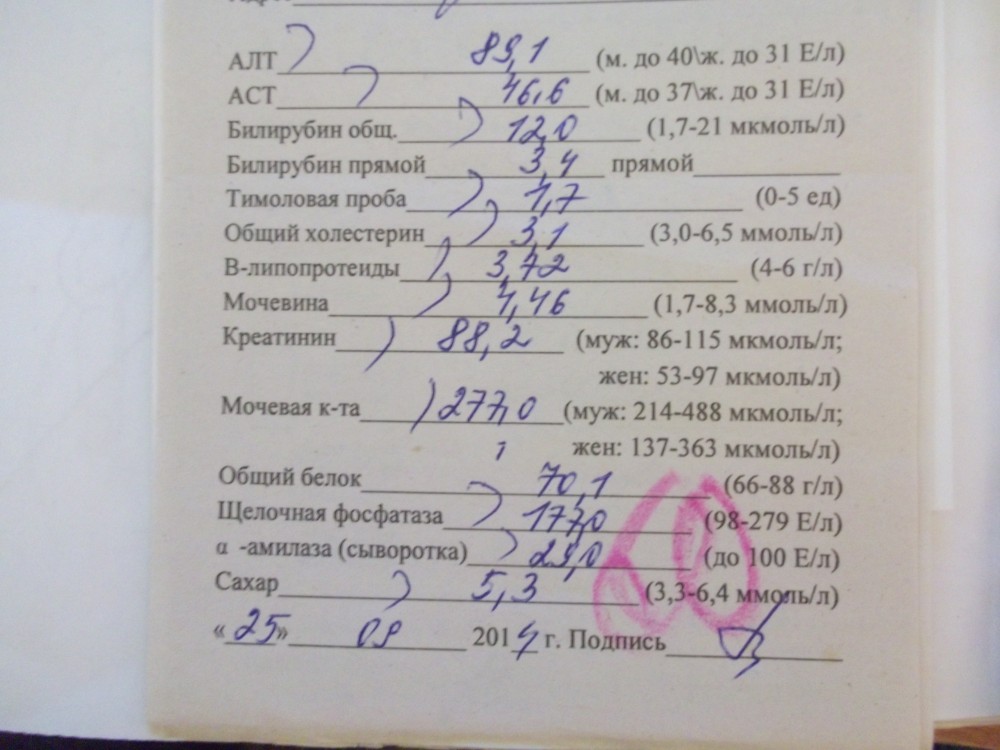 АЛТ 89,1 (м. до 40\ж. до 31 Е/л)
АСТ 46,6 (м. до 37\ж. до 31 Е/л)
Билирубин общ. 12,0 (1,7-21 мкмоль/л)
Билирубин прямой 3,4 прямой
Тимоловая проба 1,7 (0-5 ед)
Общий холестерин 3,1 (3,0-6,5 ммоль/л)
В-липопротеиды 3,72 (4-6 г/л)
Мочевина 4,46 (1,7-8,3 ммоль/л)
Креатинин 88,2 (муж: 86-115 мкмоль/л;
жен: 53-97 мкмоль/л)
Мочевая к-та 277,0 (муж: 214-488 мкмоль/л;
жен: 137-363 мкмоль/л)
Общий белок 70,1 (66-88 г/л)
Щелочная фосфатаза 177,0 (98-279 Е/л)
α -амилаза (сыворотка) 29,0 (до 100 Е/л)
Сахар 5,3 (3,3-6,4 ммоль/л)
«25» 09 2014 г. Подпись